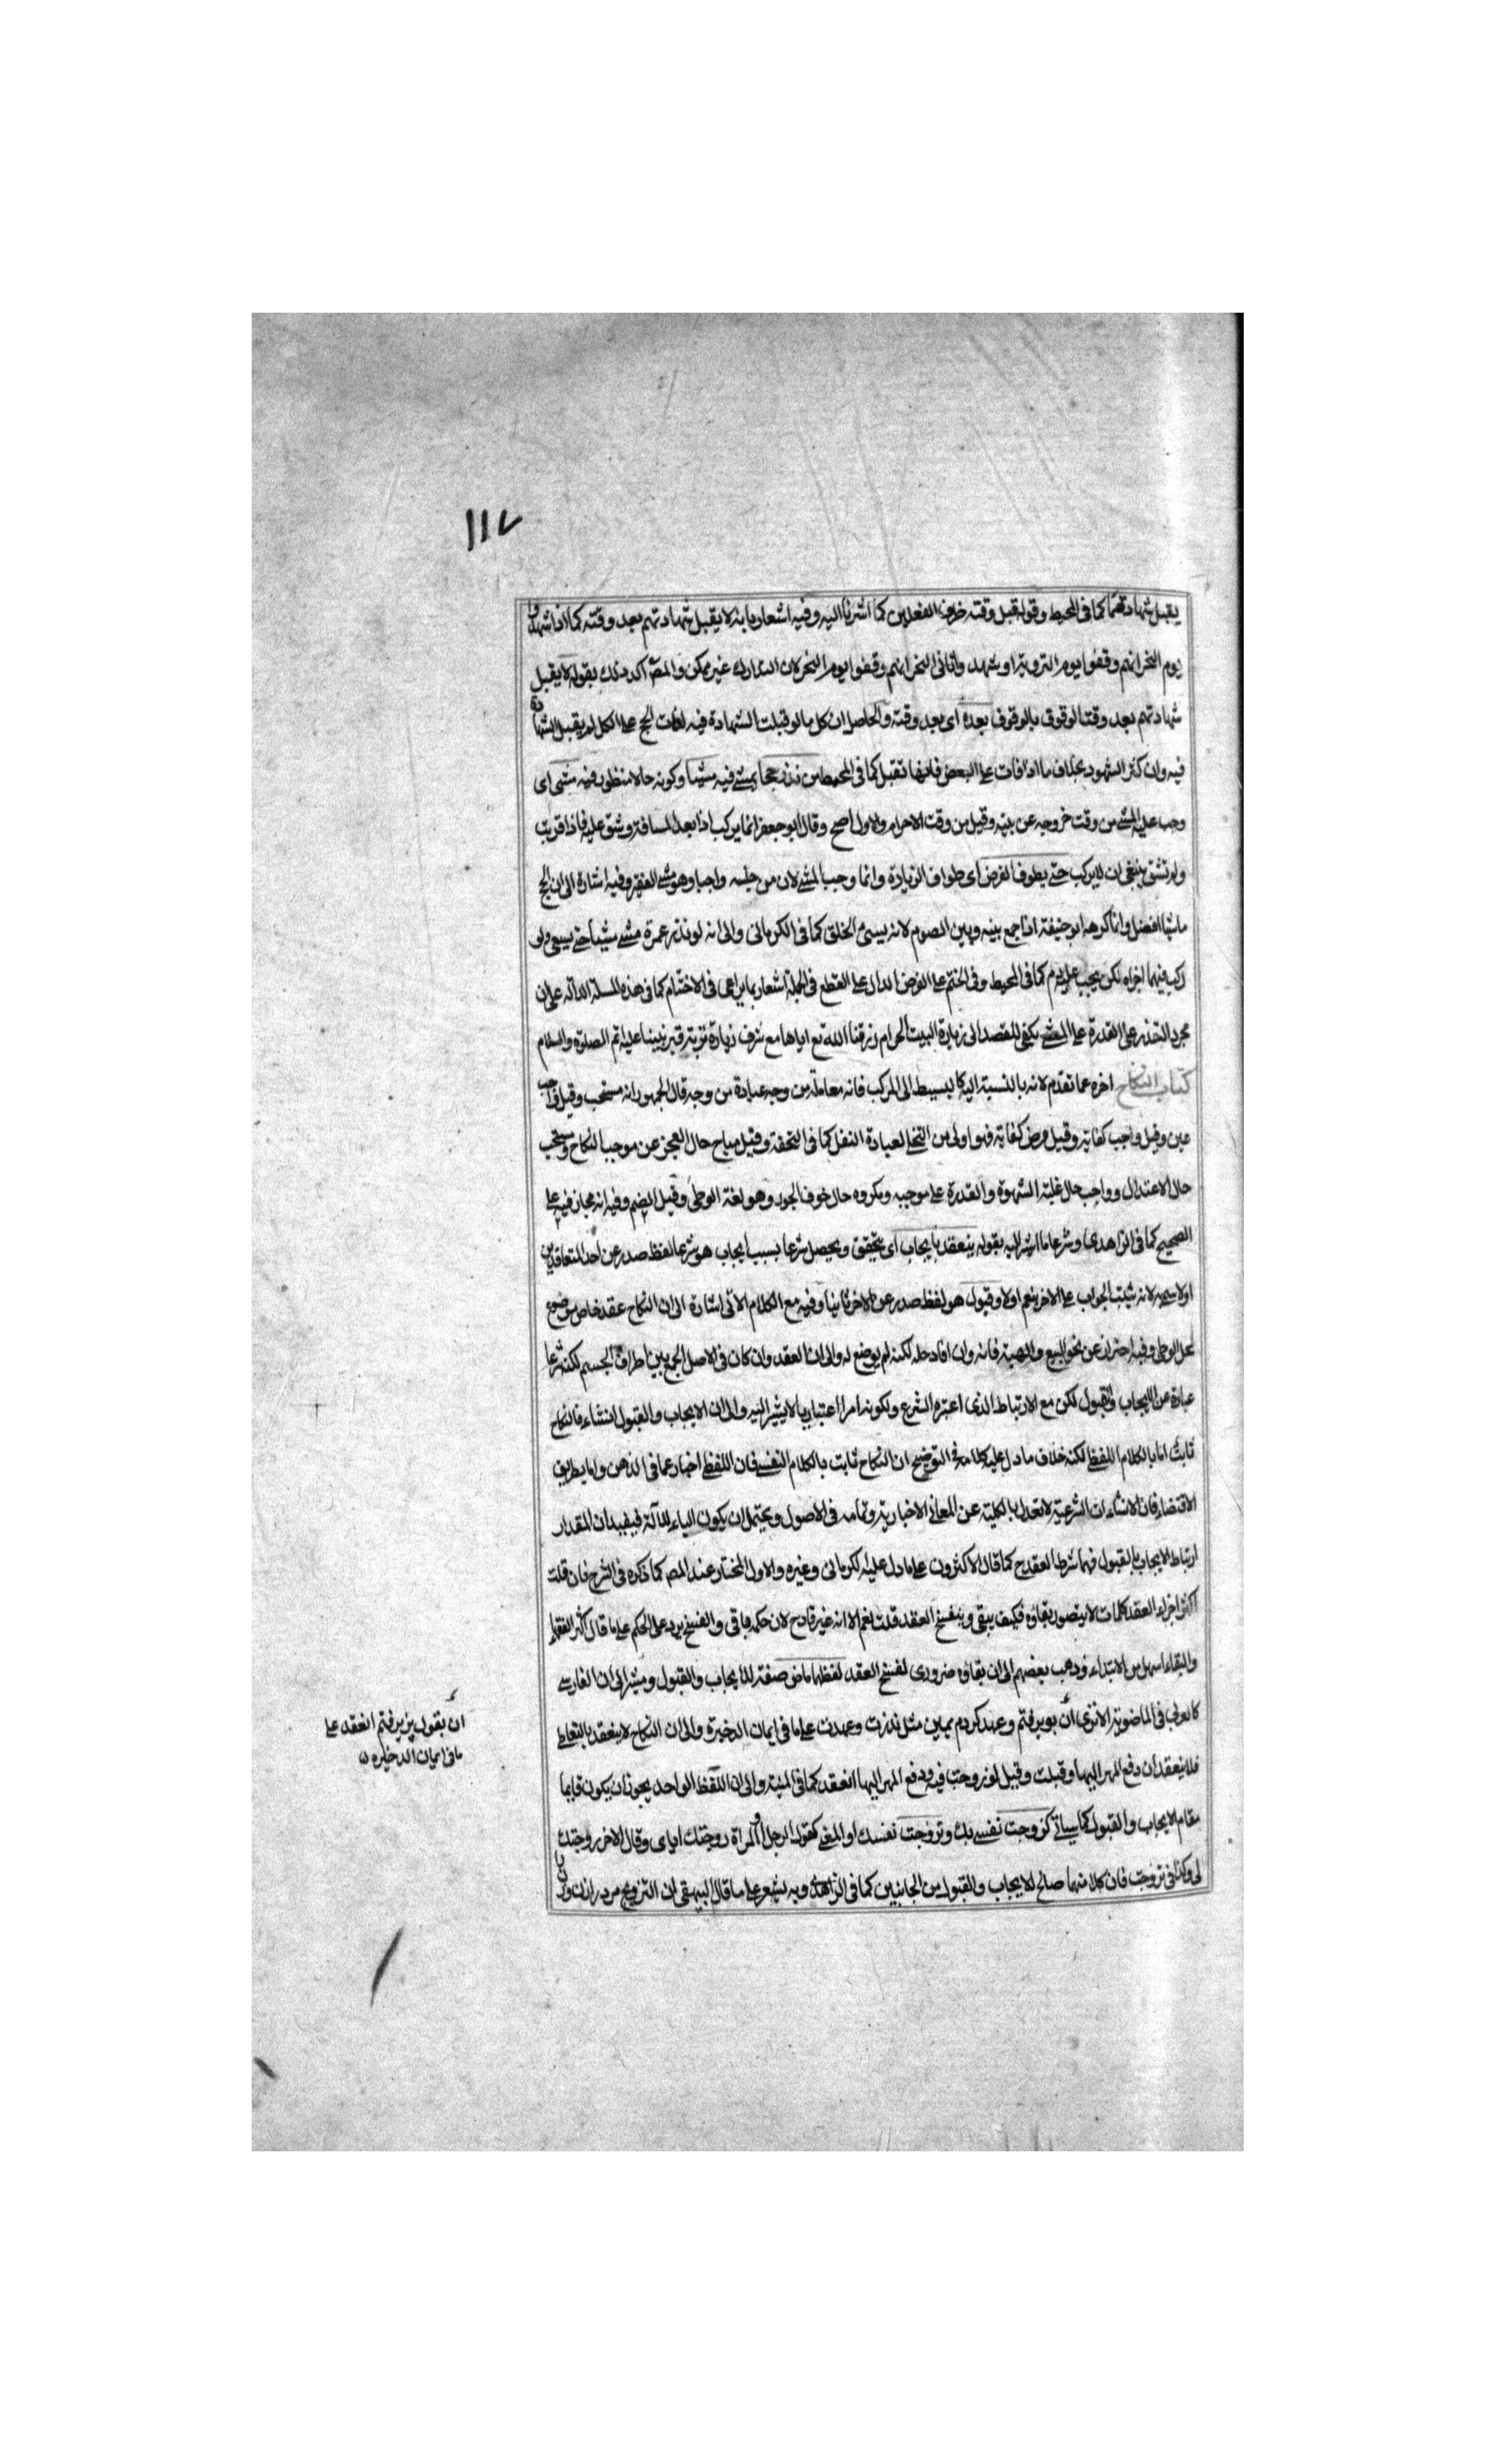 ١١٧
يقبل شهادتهما كما فى المحيط وقوله قبل وقته ظرف الفعلين كما اشرنا اليه وفيه اشعار بانه لا يقبل شهادتهم بعد وقته كما اذا شهدوا
يوم النحر انهم وقفوا يوم التروية او شهد وا ثانى النحر انهم وقفوا يوم النحر لان التدارك غير ممكن والمص اكد ذلك بقوله لا يقبل
شهادتهم بعد وقت الوقوف بالوقوف بعده اى بعد وقته والحاصل ان كل ما لو قبلت الشهادة فيه لفات الحج على الكل لم يقبل الشهادة
فيه وان كثر الشهود بخلاف ما اذا فات على البعض فانها تقبل كما فى المحيط من نذر حجا يمشى فيه مشيا وكونه حالا منظور فيه مشى اى
وجب عليه المشى من وقت خروجه عن بيته وقيل من وقت الاحرام والاول اصح وقال ابو جعفر انما يركب اذا بعد المسافة وشق عليه فاذا قربت
ولم تشق ينبغى ان لا يركب حتى يطوف الفرض اى طواف الزيارة وانما وجب المشى لان من جنسه واجبا وهو مشى الفقير وفيه اشارة الى ان الحج
ماشيا افضل وانما كرهه ابو حنيفة اذا جمع بينه وبين الصوم لانه يسئ الخلق كما فى الكرمانى والى انه لو نذر عمرة مشى مشيا حتى يسعى ولو
ركب فيهما اجزاه لكن يجب عليه دم كما فى المحيط وفى الختم على الفرض الدال على القطع فى الجملة اشعار بما يراعى فى الاختتام كما فى هذه المسئلة الدالة على ان
مجرد التخذر على القدرة على المشى يكفى للقصد الى زيارة البيت الحرام رزقنا الله تع اياها مع شرف زيارة تربة قبر نبينا عليه اتم الصلوة والسلام
كتاب النكاح اخره عما تقدم لانه بالنسبة اليه كالبسيط الى المركب فانه معاملة من وجه عبادة من وجه قال الجمهور انه مستحب وقيل واجب
عين وقيل واجب كفاية وقيل فرض كفاية فهو اولى من التخلى لعبادة النفل كما فى التحفة وقيل مباح حال العجز عن موجب النكاح ومستحب
حال الاعتدال وواجب حال غلبة الشهوة والقدرة على موجبه ومكروه حال خوف الجور وهو لغة الوطئ وقيل الضم وفيه انه مجاز فيه على
الصحيح كما فى الزاهدى وشرعا ما اشار اليه بقوله ينعقد بايجاب اى يتحقق ويحصل شرعا بسبب ايجاب هو شرعا لفظ صدر عن احد المتعاقدين
اولا سمى به لانه يثبت الجواب على الاخر بنعم اولا وقبول هو لفظ صدر عن الاخر ثانيا وفيه مع الكلام الاتى اشارة الى ان النكاح عقد خاص موضوع
لحل الوطى وفيه احتراز عن نحو البيع والهبة فانه وان افاد حله لكنه لم يوضع له والى ان العقد وان كان فى الاصل الجمع بين اطراف الجسم لكنه شرعا
عبارة عن الايجاب والقبول لكن مع الارتباط الذى اعتبره الشرع ولكونه امرا اعتباريا لا يشير اليه والى ان الايجاب والقبول انشاء فالنكاح
ثابت اما بالكلام اللفظى لكنه خلاف ما دل عليه كلامه فى التوضيح ان النكاح ثابت بالكلام النفسى فان اللفظى اخبار عما فى الذهن واما بطريق
الاقتضاء فان الانشاءات الشرعية لا تعدل بالكلية عن المعانى الاخبارية وتمامه فى الاصول ويحتمل ان يكون الباء للآلة فيفيد ان المقدار
ارتباط الايجاب بالقبول فهما شرطا العقد ح كما قال الاكثرون على ما دل عليه الكرمانى وغيره والاول المختار عند المص كما ذكره فى الشرح فان قلت
اكثر اجزاء العقد كلمات لا يتصور بقاؤه فكيف يبقى وينفسخ العقد قلت نعم الا انه غير قادح لان حكمه باقى والفسخ يرد على الحكم على ما قال اكثر الفقهاء
والبقاء اسهل من الابتداء وذهب بعضهم الى ان بقاؤه ضرورى لفسخ العقد لفظهما ماض صفة للايجاب والقبول ومشير الى ان الفارسى
كالعربى فى الماضوية الا ترى ان بويرفتم وعهد كردم يمين مثل نذرت وعهدت على ما فى ايمان الذخيرة والى ان النكاح لا ينعقد بالتعاطى
فلا ينعقد ان دفع المهر اليها وقبلت وقيل لو زوجت فيه ودفع المهر اليها انعقد كما فى المنية والى ان اللفظ الواحد يجوز ان يكون قايما
مقام الايجاب والقبول كما سياتى كزوجت نفسى بك وتزوجت نفسك او المعنى كقول الرجل او المراة زوجتك اياى وقال الاخر زوجتك
لى وكذا فى تزوجت فان كلا منهما صالح للايجاب والقبول من الجانبين كما فى الزاهدى وبه يشعر على ما قال البيهقى ان التزويج مرد را زن وزن را
ان يقول پزيرفتم العقد على
ما فى ايمان الذخيره